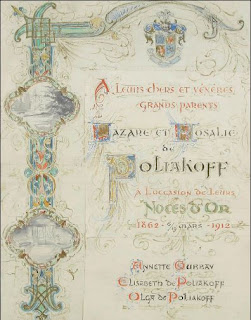 A LEURS CHERS ET VÉNÉRÉS
GRANDS PARENTS
LAZARE ET ROSALIE
DE
POLIAKOFF
A L'OCCASION DE LEURS
NOCES D'OR
1862 MARS 1912
ANNETTE
ELISABETH DE POLIAKOFF
OLGA DE POLIAKOFF